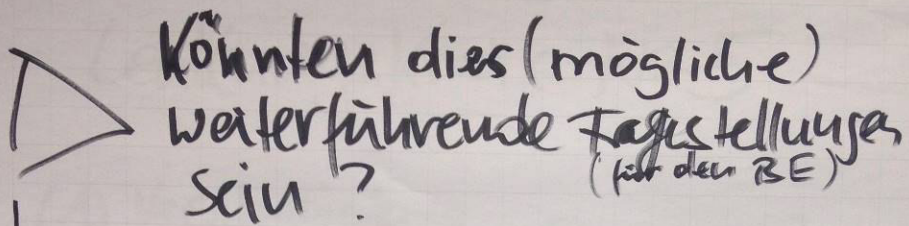 Könnten dies (mögliche)
weiterführende Fragestellungen
(für den BE)
sein?